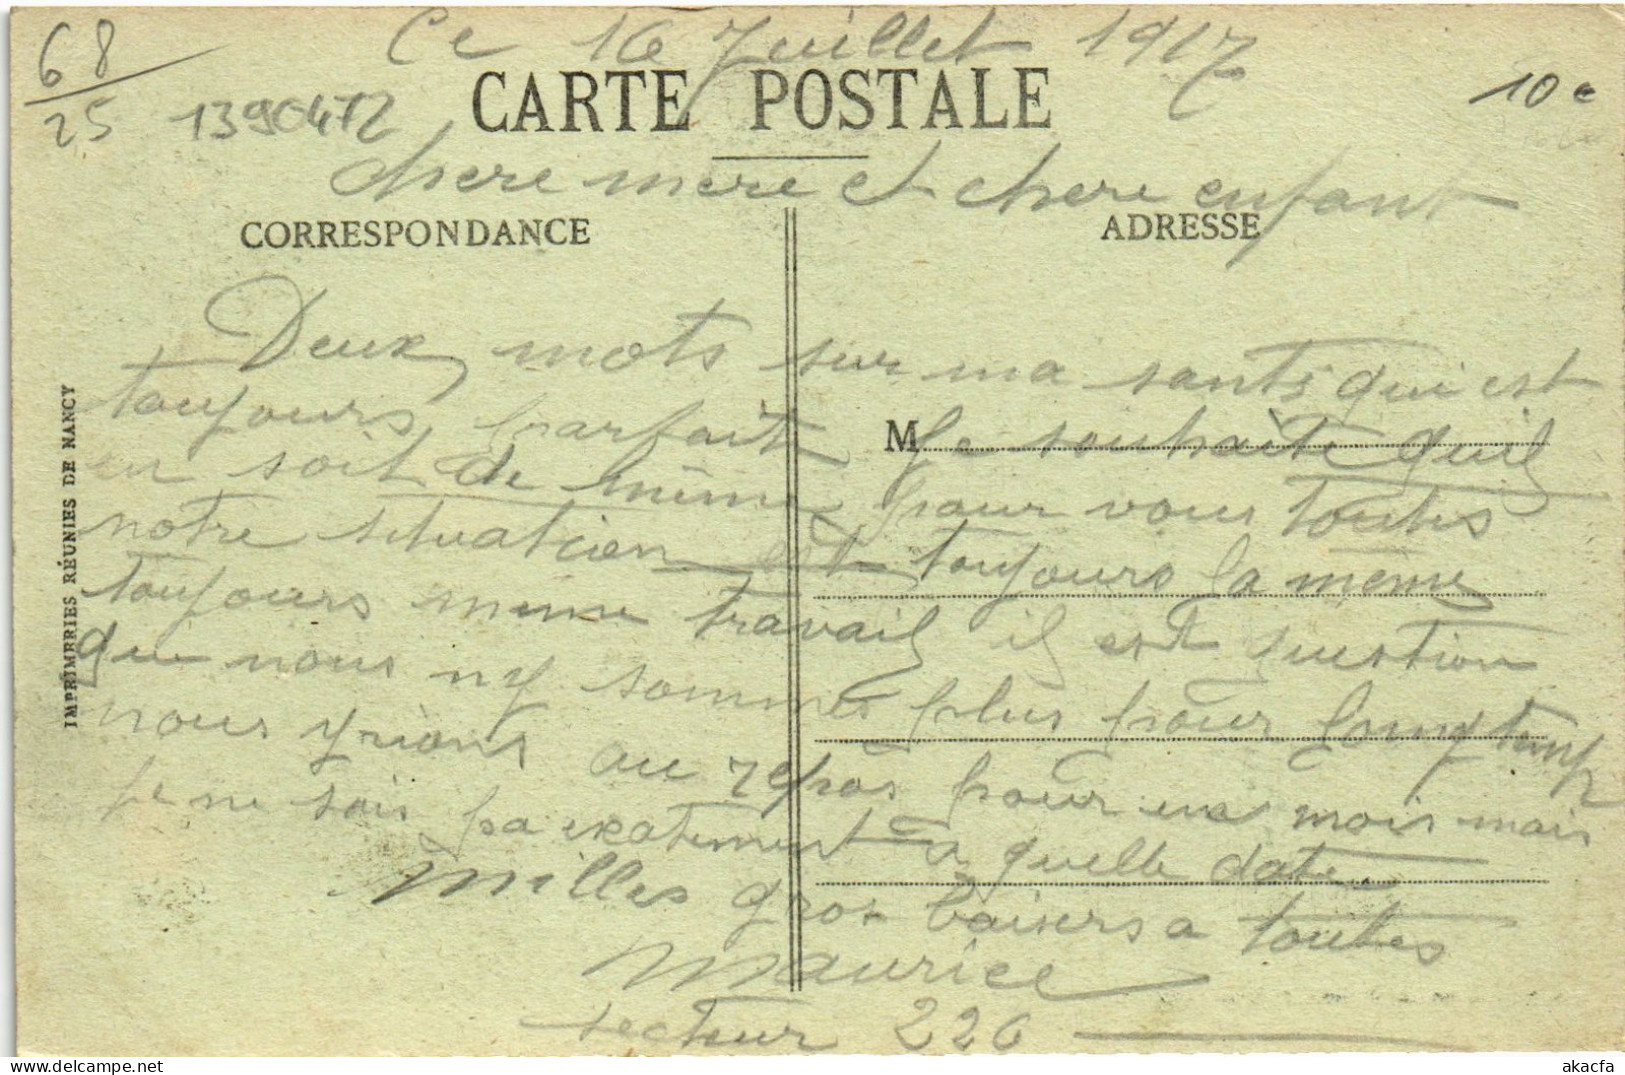 68
25
1390472
10e
Ce 16 Juillet 1917
CARTE POSTALE
chere mere et chere enfant
CORRESPONDANCE
ADRESSE
Deux mots sur ma sante qui est
toujours parfait Je souhaite quil
M
en soit de même pour vous toutes
notre situation est toujours la meme
toujours meme travail il est question
que nous ny sommes plus pour longtemp
nous yrions au repos pour un mois mais
je ne sais pa exatement a quelle date
Milles gros baisers a toutes
Maurice
secteur 226
IMPRIMERIES RÉUNIES DE NANCY
akacfa